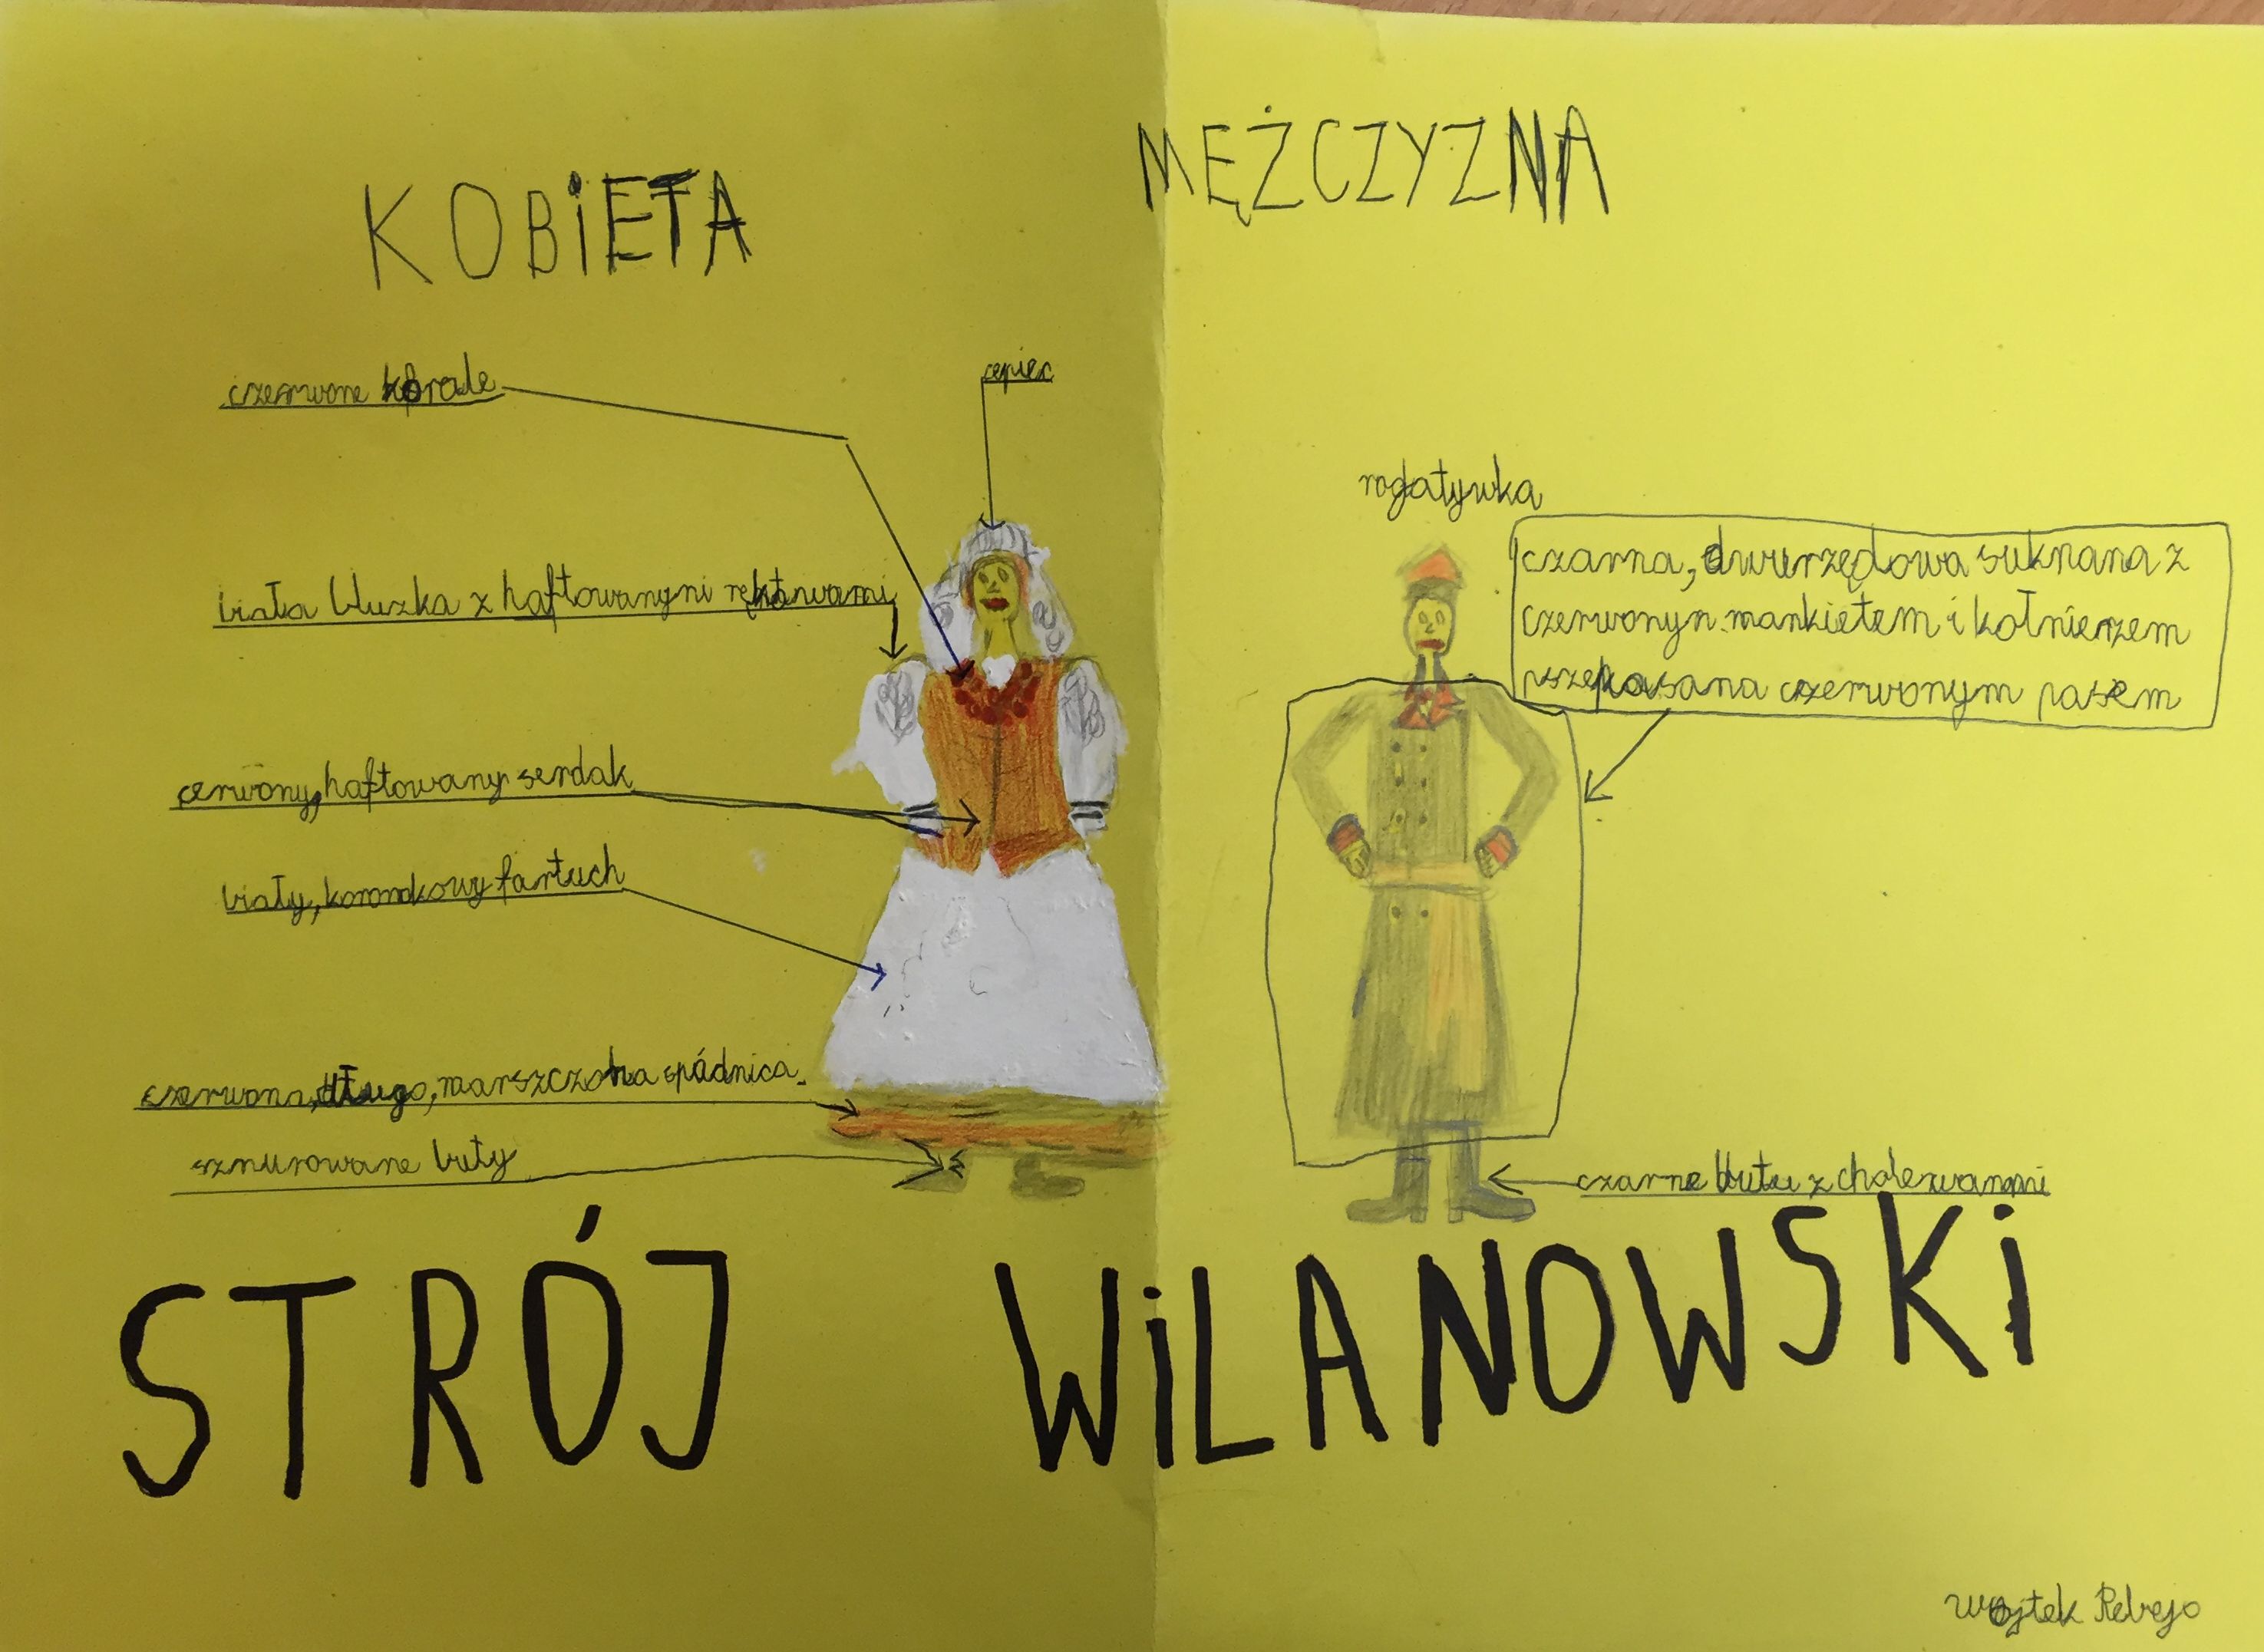 KOBiETA
MĘŻCZYZNA
czerwone korale
cepiec
biała bluzka z haftowanymi rękawami
cerwony, haftowany serdak
biały, koronkowy fartuch
czerwona, długo, marszczona spódnica.
sznurowane buty
rogatywka
czarna, dwurzędowa suknana z
czerwonyn mankietem i kołnierzem
pszepasana czerwonym pasem
czarne butu z cholewanmi
STRÓJ WiLANOWSKi
Wojtek Rebejo